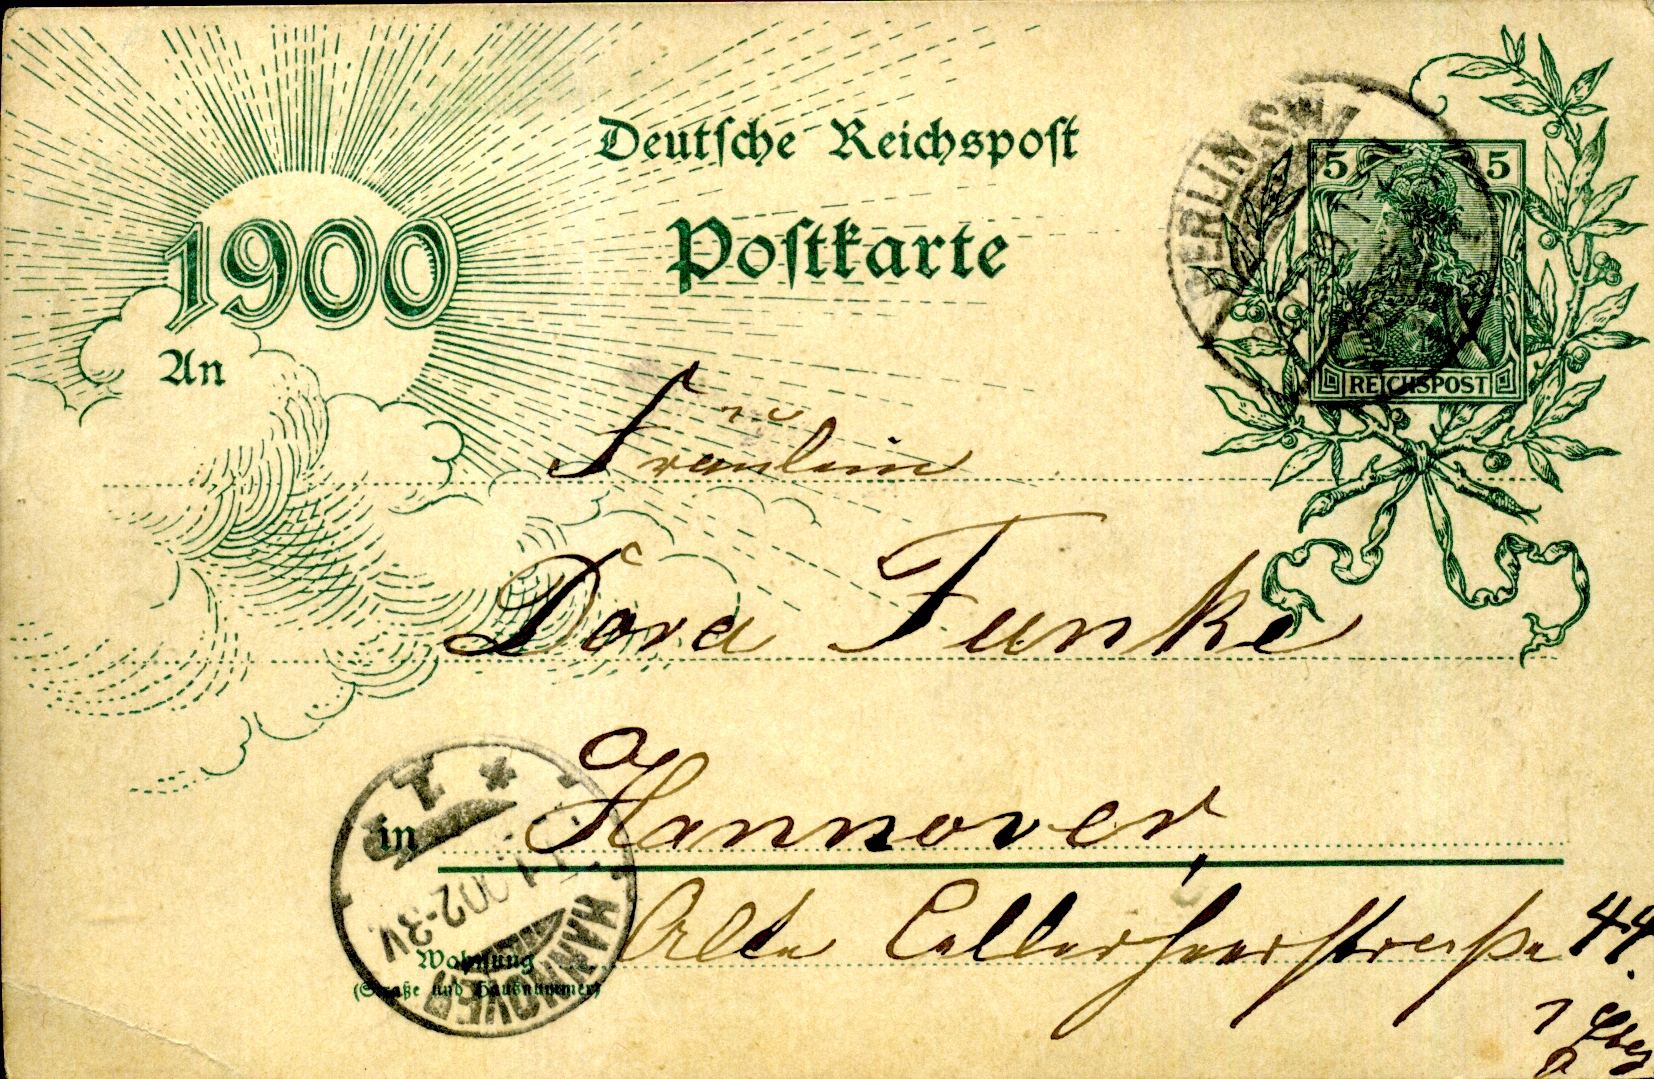 Deutsche Reichspost
Postkarte
1900
5 5
REICHSPOST
BERLIN SW
An
Fräulein
Dora Funke
in Hannover,
Alte Cellerheerstraße 44.
Wohnung
(Straße und Hausnummer)
HANNOVER
2-3V.